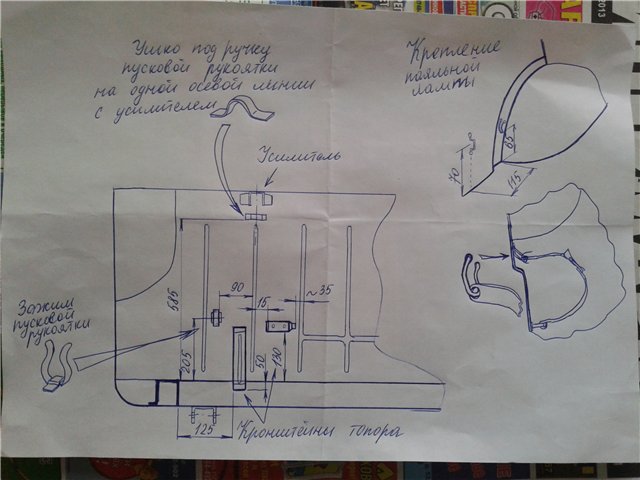 Ушко под ручку
пусковой рукоятки
на одной осевой линии
с усилителем
Крепление
паяльной
лампы
Усилитель
65
70
115
90
15
~35
585
Зажим
пусковой
рукоятки
205
50
130
125
Кронштейны топора
2013